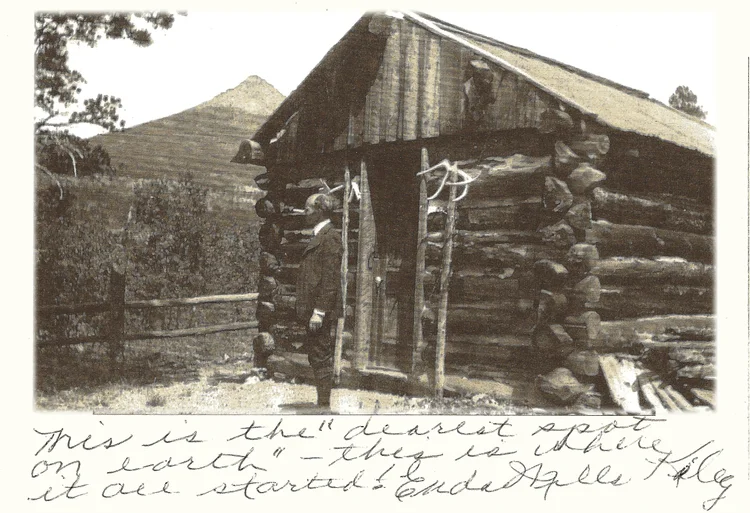 This is the "dearest spot
on earth" - this is where
it all started! Enda Mills Kiley